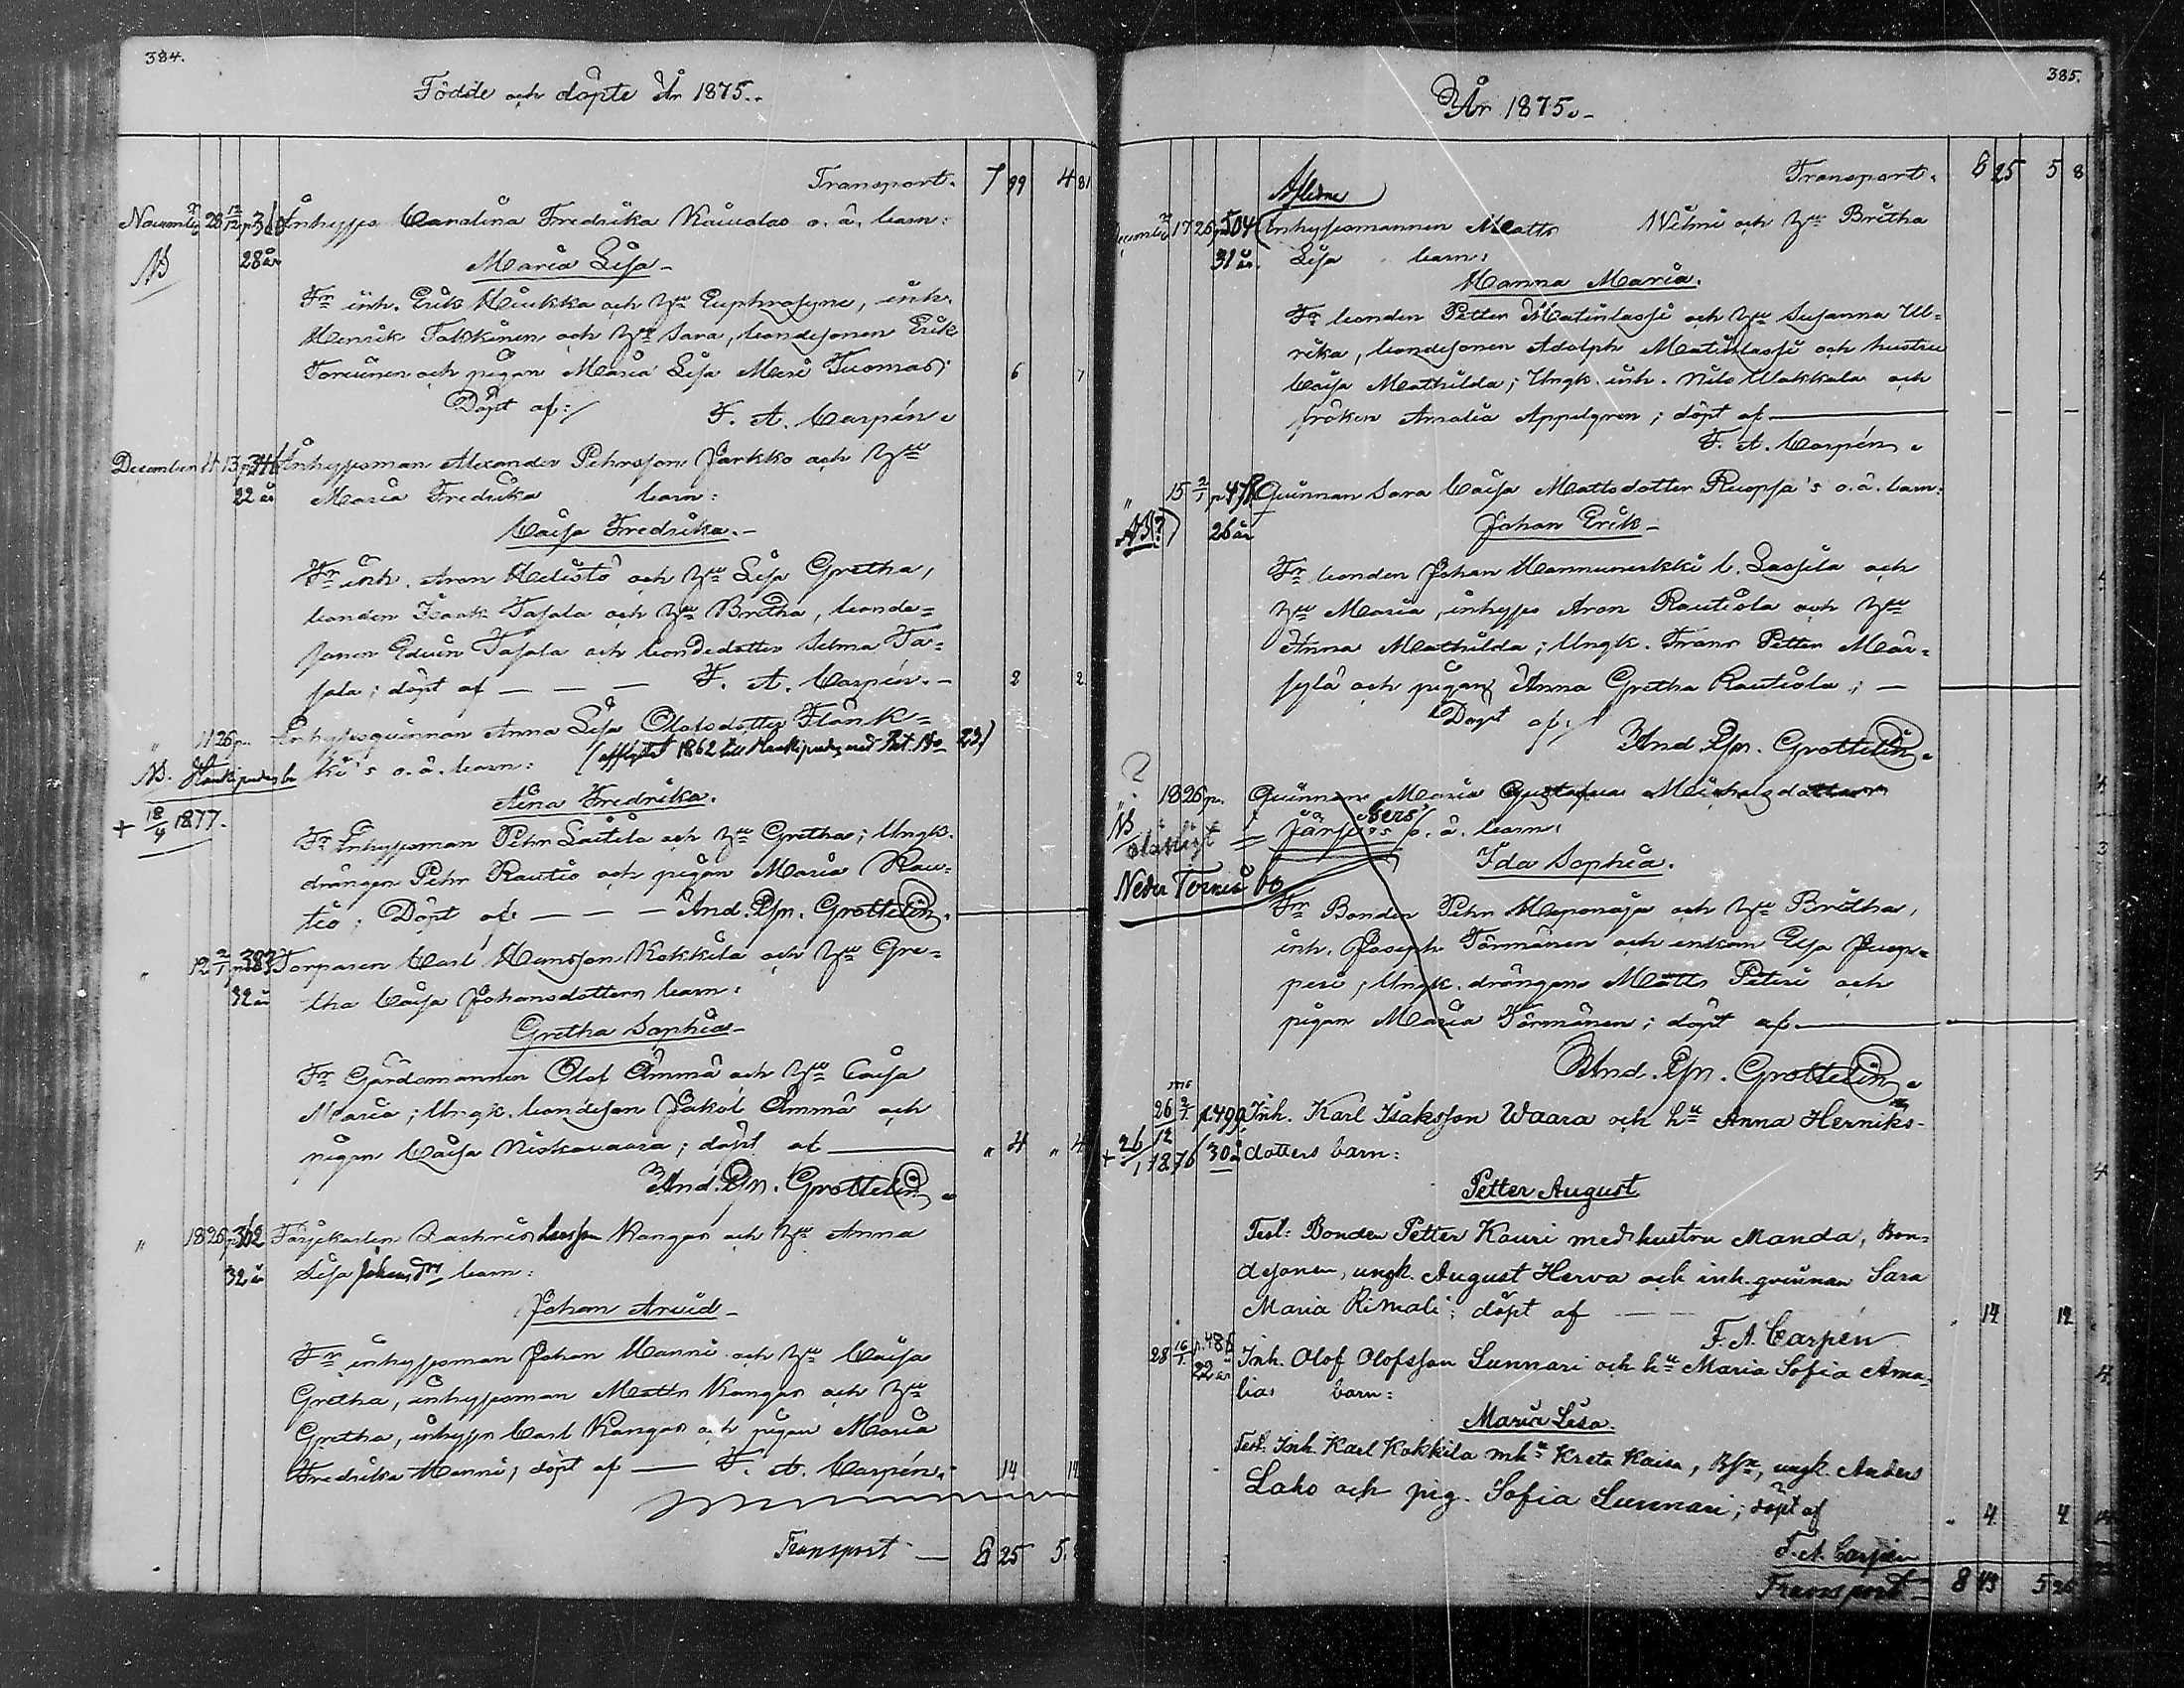 384.
Födde och döpte År 1875.
Transport. 7 99 4 81
November 28 12/12 p. Inhyses Carolina Fredrika o. ä. barn:
NB 28 år Maria Lisa
Fr inh. Erik Hiukka och hu Euphrosyne, inh.
Henrik Takkinen och hu Sara, bondesonen Erik
Torvinen och pigan Maria Lisa Meri Tuomas; 6 7
Döpt af: F. A. Carpén.
December 11 13 p. 346 Inhysesman Alexander Pehrsson Jarkko och hu
22 år Maria Fredrika barn:
Caisa Fredrika.
Fr inh. Aron Helistö och hu Lisa Gretha,
bonden Isaak Tasala och hu Bretha, bonde-
sonen Edvin Tasala och bondedotter Selma Ta-
sala; döpt af — — — F. A. Carpén. 2 2
" 11 26 p. Inhysesqvinnan Anna Lisa Olofsdotter Flänk-
NB. Haukipudas bo ki's o. ä. barn: (afflyttat 1862 till Haukipudas med Bet. No 23)
Aina Fredrika.
+ 18/4 1877.
Fr Inhysesman Pehr Laitila och hu Gretha; Ungk.
drängen Pehr Rautio och pigan Maria Rau-
tio; Döpt af — — — And. Js. Grottelin.
" 12 2/1 p. 383 Torparen Carl Hansson Kokkila och hu Gre-
32 år tha Caisa Johansdotters barn:
Gretha Sophia
Fr Gårdsmannen Olof Ämmä och hu Caisa
Maria; Ungk. bondeson Jakob Ämmä och
pigan Caisa Niskavaara; döpt af " 4 " 4
And. Js. Grottelin.
" 18 26 p. 362 Färjekarlen Zachris Larsson Kangas och hu Anna
32 år Lisa Johansdr barn:
Johan Arvid
Fr inhysesman Johan Hanni och hu Caisa
Gretha, inhysesman Matts Kangas och hu
Gretha, inhyses Carl Kangas och pigan Maria
Fredrika Hanni; döpt af — F. A. Carpén. 14 14
Transport — 8 25 5.
385.
År 1875.
Transport. 8 25 5 8
Aflidne
December 17 26 p. 504 Inhysesmannen Matts Wilmi och hu Britha
31 år. Lisa barn:
Hanna Maria.
Fr bonden Petter Matinlassi och hu Susanna Ul-
rika, bondesonen Adolph Matinlassi och hustru
Caisa Mathilda; Ungk. inh. Nils Wakkala och
fröken Amalia Appelgren; döpt af
F. A. Carpén.
" 15 2/1 p. 478 Qvinnan Sara Caisa Mattsdotter Ruopsa's o. ä. barn:
NB?) 26 år Johan Erik
Fr bonden Johan Hannuneskki l. Lassila och
hu Maria, inhyses Aron Rautiola och hu
Anna Mathilda; Ungk. Frans Petter Mär-
sylä och pigan Anna Gretha Rautiola;
Döpt af: And. Js. Grottelin.
?
" 18 26 p. Qvinnan Maria Gustafva Michelsdotter
NB o. ä. barn:
oläsligt Ida Sophia.
Neder Torneå bo
Fr Bonden Pehr Meponaja och hu Britha,
inh. Joseph Törmänen och enkan Elsa Juop-
peri; Ungk. drängen Matts Peteri och
pigan Maria Törmänen; döpt af
And. Js. Grottelin.
26 2/1 p. 499 Inh. Karl Isaksson Waara och hu Anna Henriks-
+ 26/1 1876 30 år dotters barn:
Petter August
Test: Bonden Petter Kauri med hustru Manda, Bon-
desonen, ungk. August Herva och inh. qvinnan Sara
Maria Rimali; döpt af 14 14
F. A. Carpén
28 16/1 p. 481 Inh. Olof Olofsson Sunnari och hu Maria Sofia Ama-
22 år lias barn:
Maria Lisa.
Test. Inh. Karl Kokkila m hu Kreta Kaisa, Bsn, ungk. Anders
Laho och pig. Sofia Sunnari; döpt af 4 4
F. A. Carpén
Transport 8 43 5 26